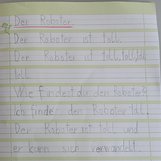 Der Roboter
Der Roboter ist toll.
Der Roboter ist toll, toll, toll
toll.
Wie findest du den Roboter?
Ich finde den Roboter toll.
Der Roboter ist toll und
er kann sich verwandelt.